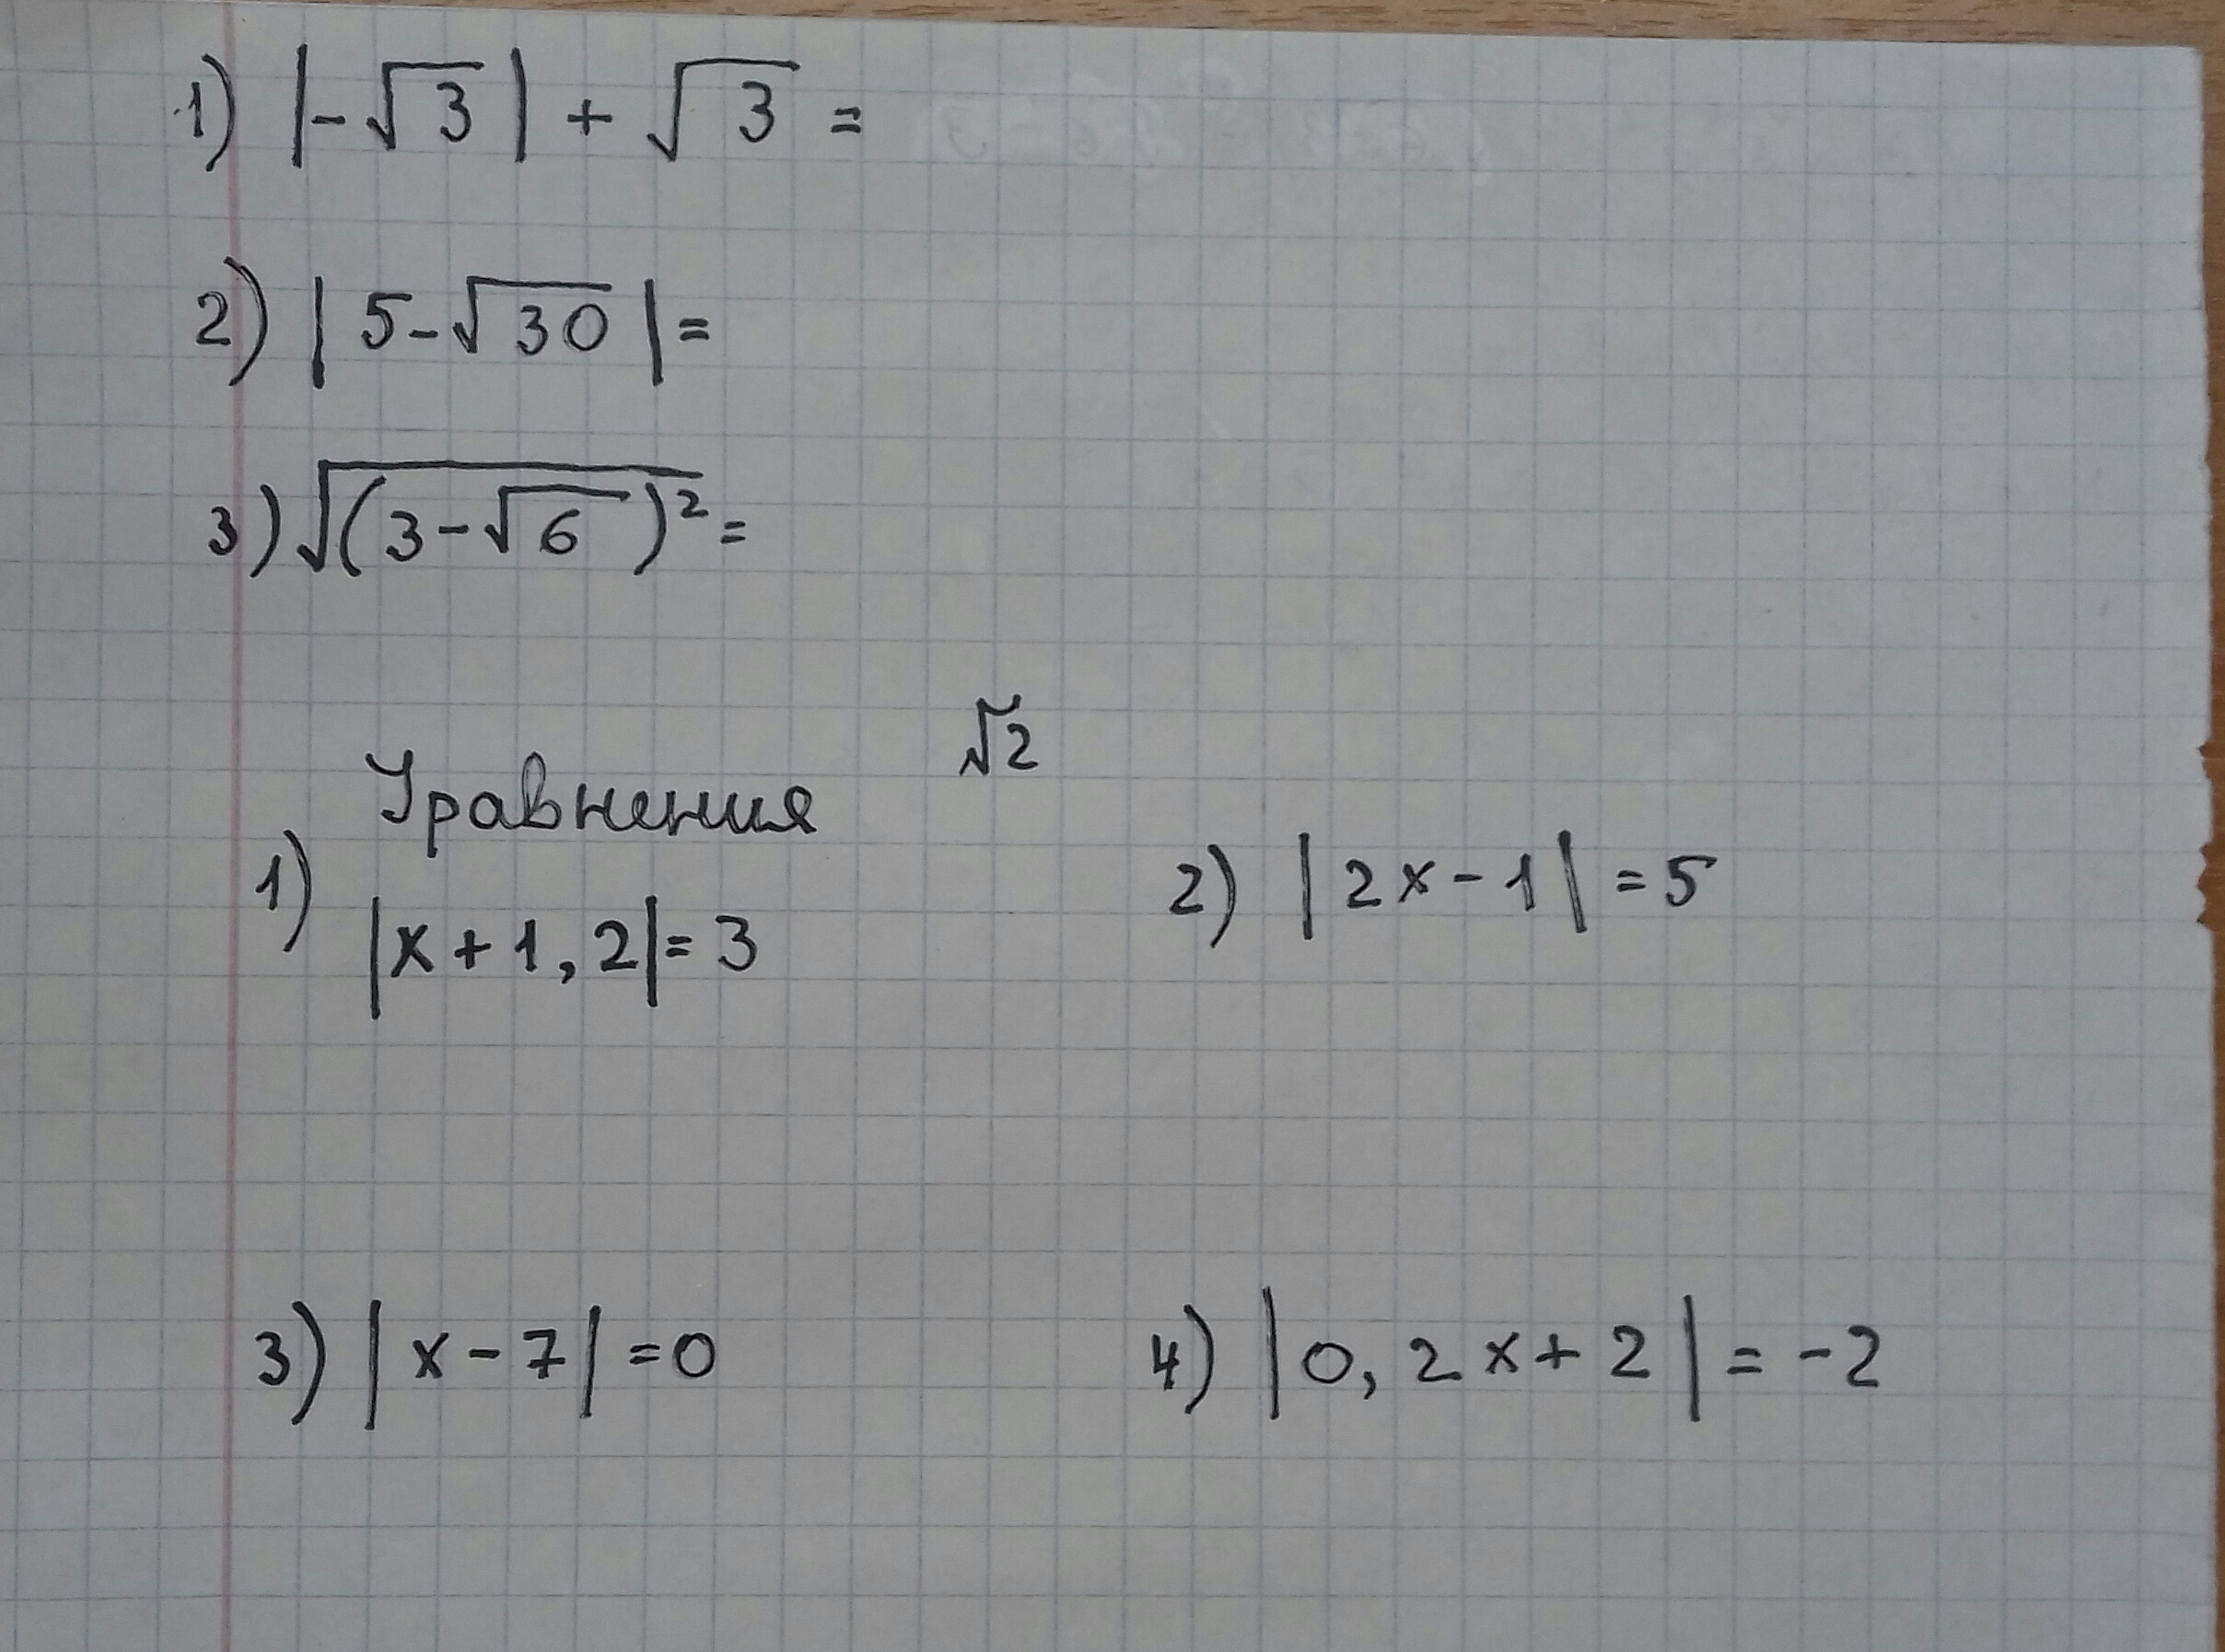 1) |-√3| + √3 =
2) |5-√30| =
3) √(3-√6)² =
√2
Уравнения
1) |x+1,2|=3
2) |2x-1|=5
3) |x-7|=0
4) |0,2x+2|=-2